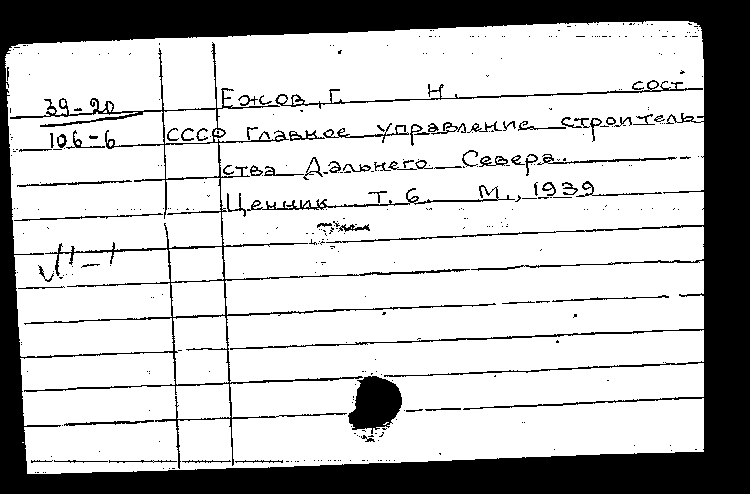 39-20
106-6
Ежов, Г. Н. сост
СССР Главное управление строитель-
ства Дальнего Севера.
Ценник Т. 6. М., 1939